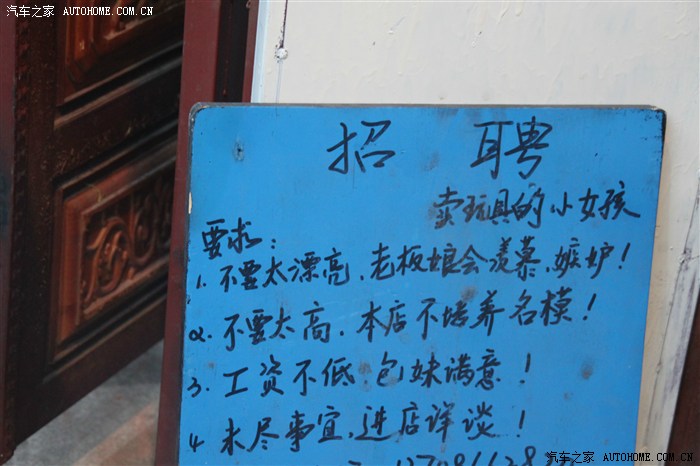 汽车之家 AUTOHOME.COM.CN
招 聘
卖玩具的小女孩
要求：
1. 不要太漂亮、老板娘会羡慕、嫉妒！
2. 不要太高、本店不培养名模！
3. 工资不低、包妹满意！
4 未尽事宜、进店详谈！
汽车之家
AUTOHOME.COM.CN